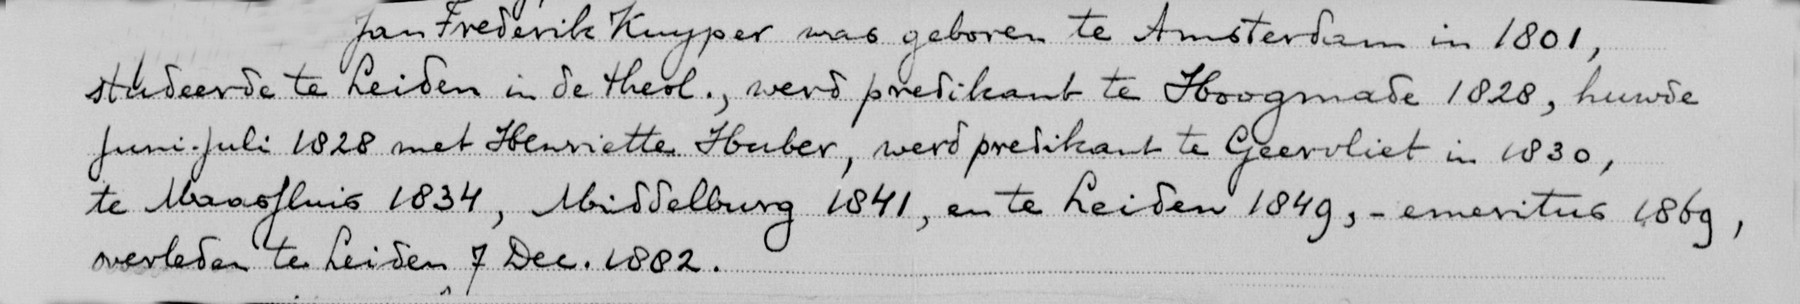 Jan Frederik Kuyper was geboren te Amsterdam in 1801,
studeerde te Leiden in de theol., werd predikant te Hoogmade 1828, huwde
Juni-Juli 1828 met Henriette Huber, werd predikant te Geervliet in 1830,
te Maassluis 1834, Middelburg 1841, en te Leiden 1849, - emeritus 1869,
overleden te Leiden 7 Dec. 1882.